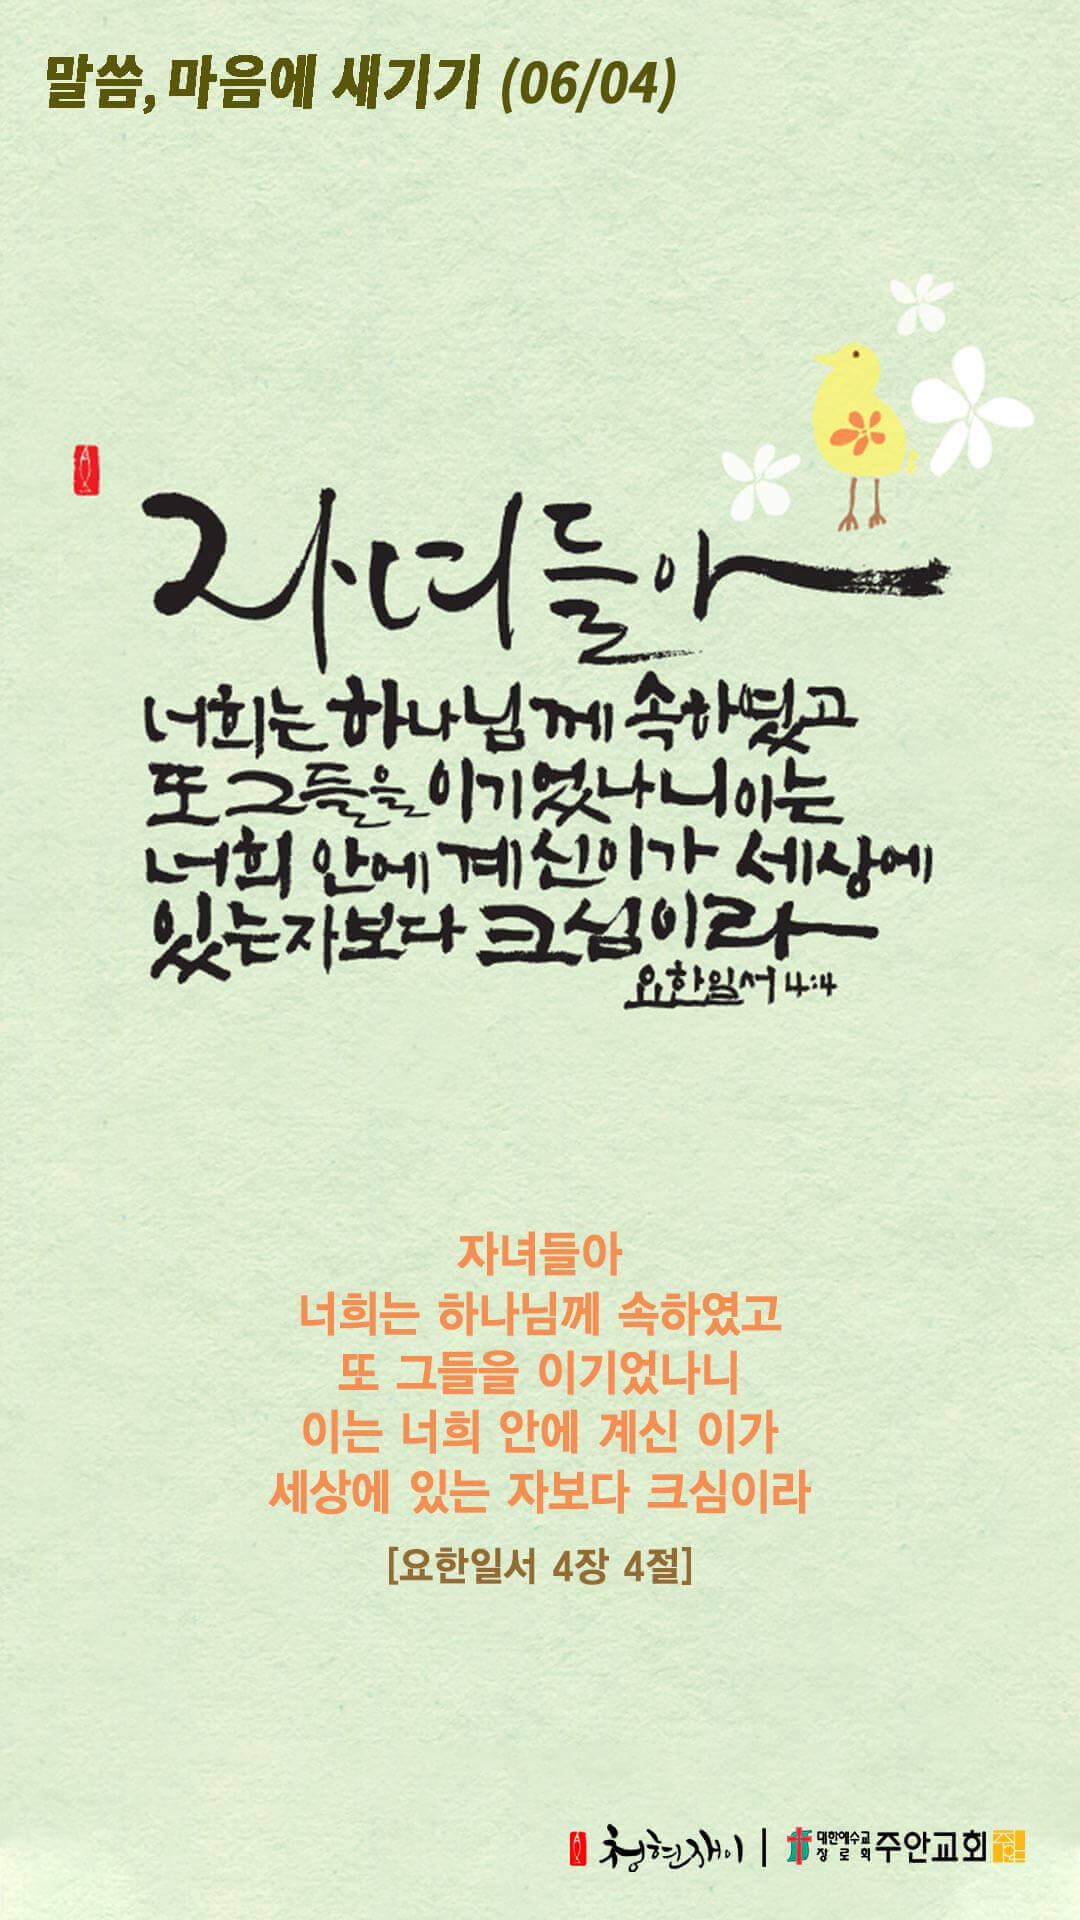 말씀, 마음에 새기기 (06/04)
자녀들아
너희는 하나님께 속하였고
또 그들을 이기었나니 이는
너희 안에 계신 이가 세상에
있는 자보다 크심이라
요한일서 4:4
자녀들아
너희는 하나님께 속하였고
또 그들을 이기었나니
이는 너희 안에 계신 이가
세상에 있는 자보다 크심이라
[요한일서 4장 4절]
청현재이 | 대한예수교
장로회 주안교회